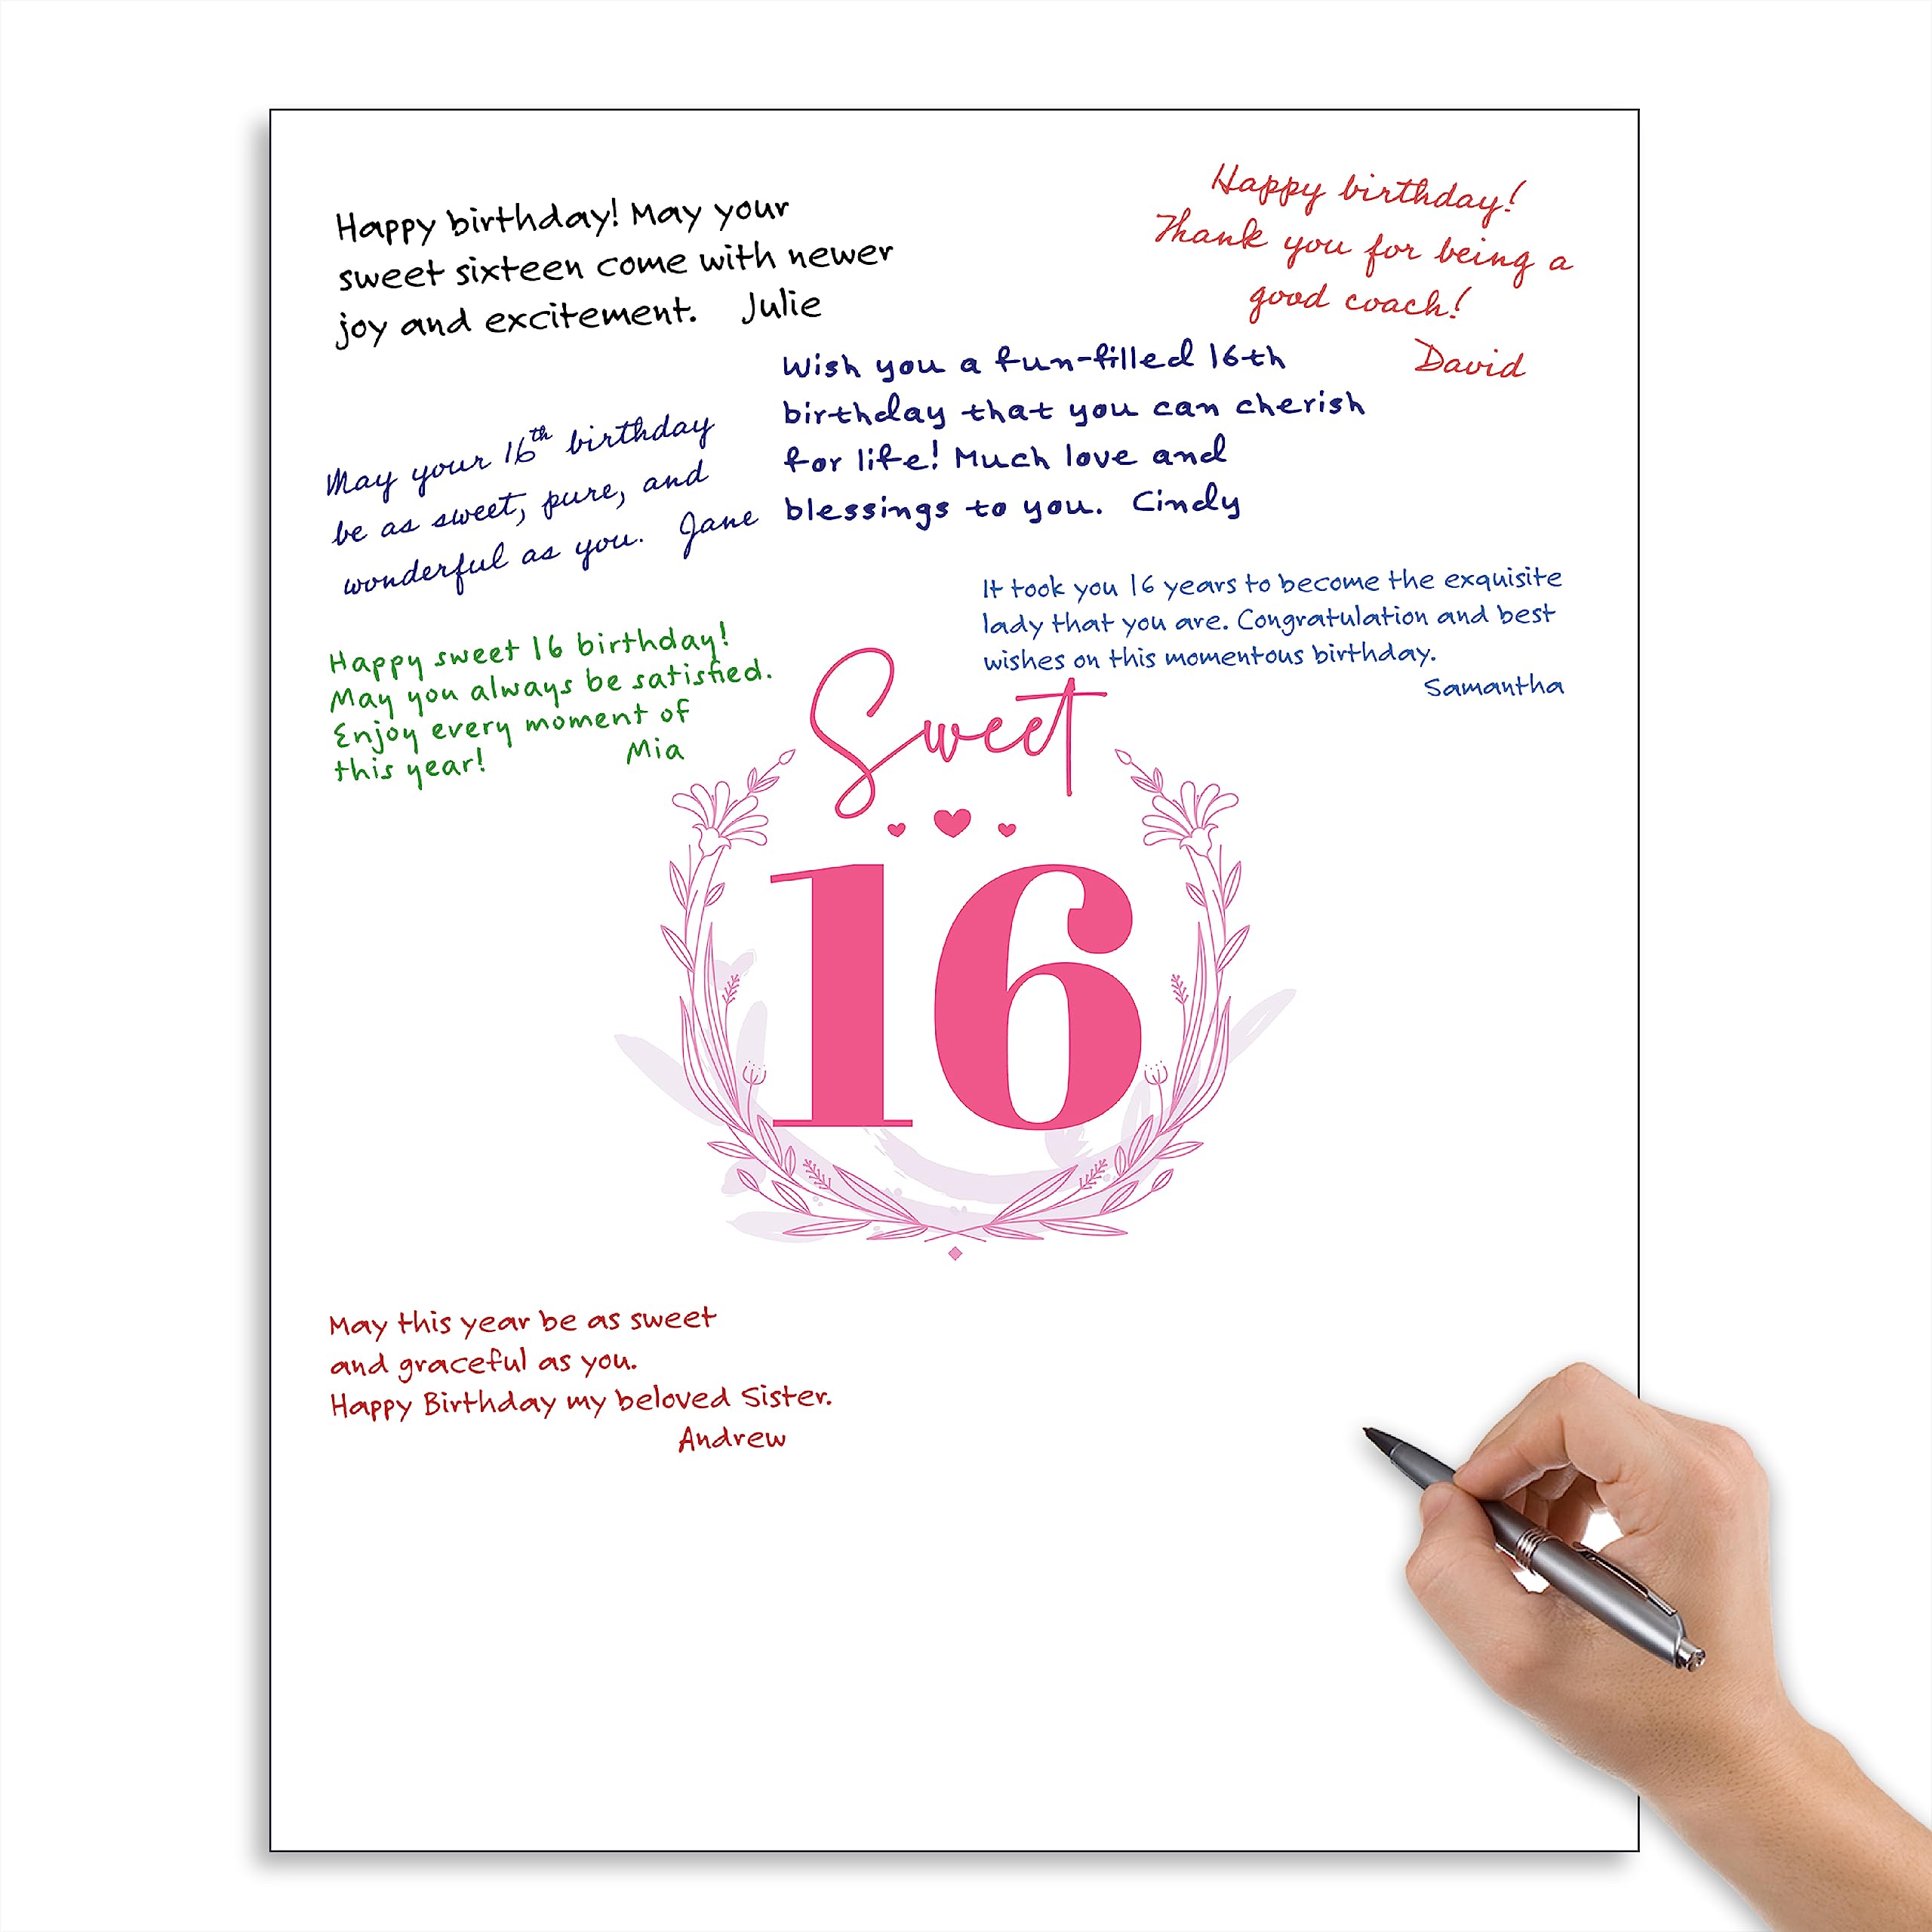 Happy birthday! May your
sweet sixteen come with newer
joy and excitement. Julie
Happy birthday!
Thank you for being a
good coach!
David
Wish you a fun-filled 16th
birthday that you can cherish
for life! Much love and
blessings to you. Cindy
May your 16th birthday
be as sweet, pure, and
wonderful as you. Jane
It took you 16 years to become the exquisite
lady that you are. Congratulation and best
wishes on this momentous birthday.
Samantha
Happy sweet 16 birthday!
May you always be satisfied.
Enjoy every moment of
this year! Mia
Sweet
16
May this year be as sweet
and graceful as you.
Happy Birthday my beloved Sister.
Andrew